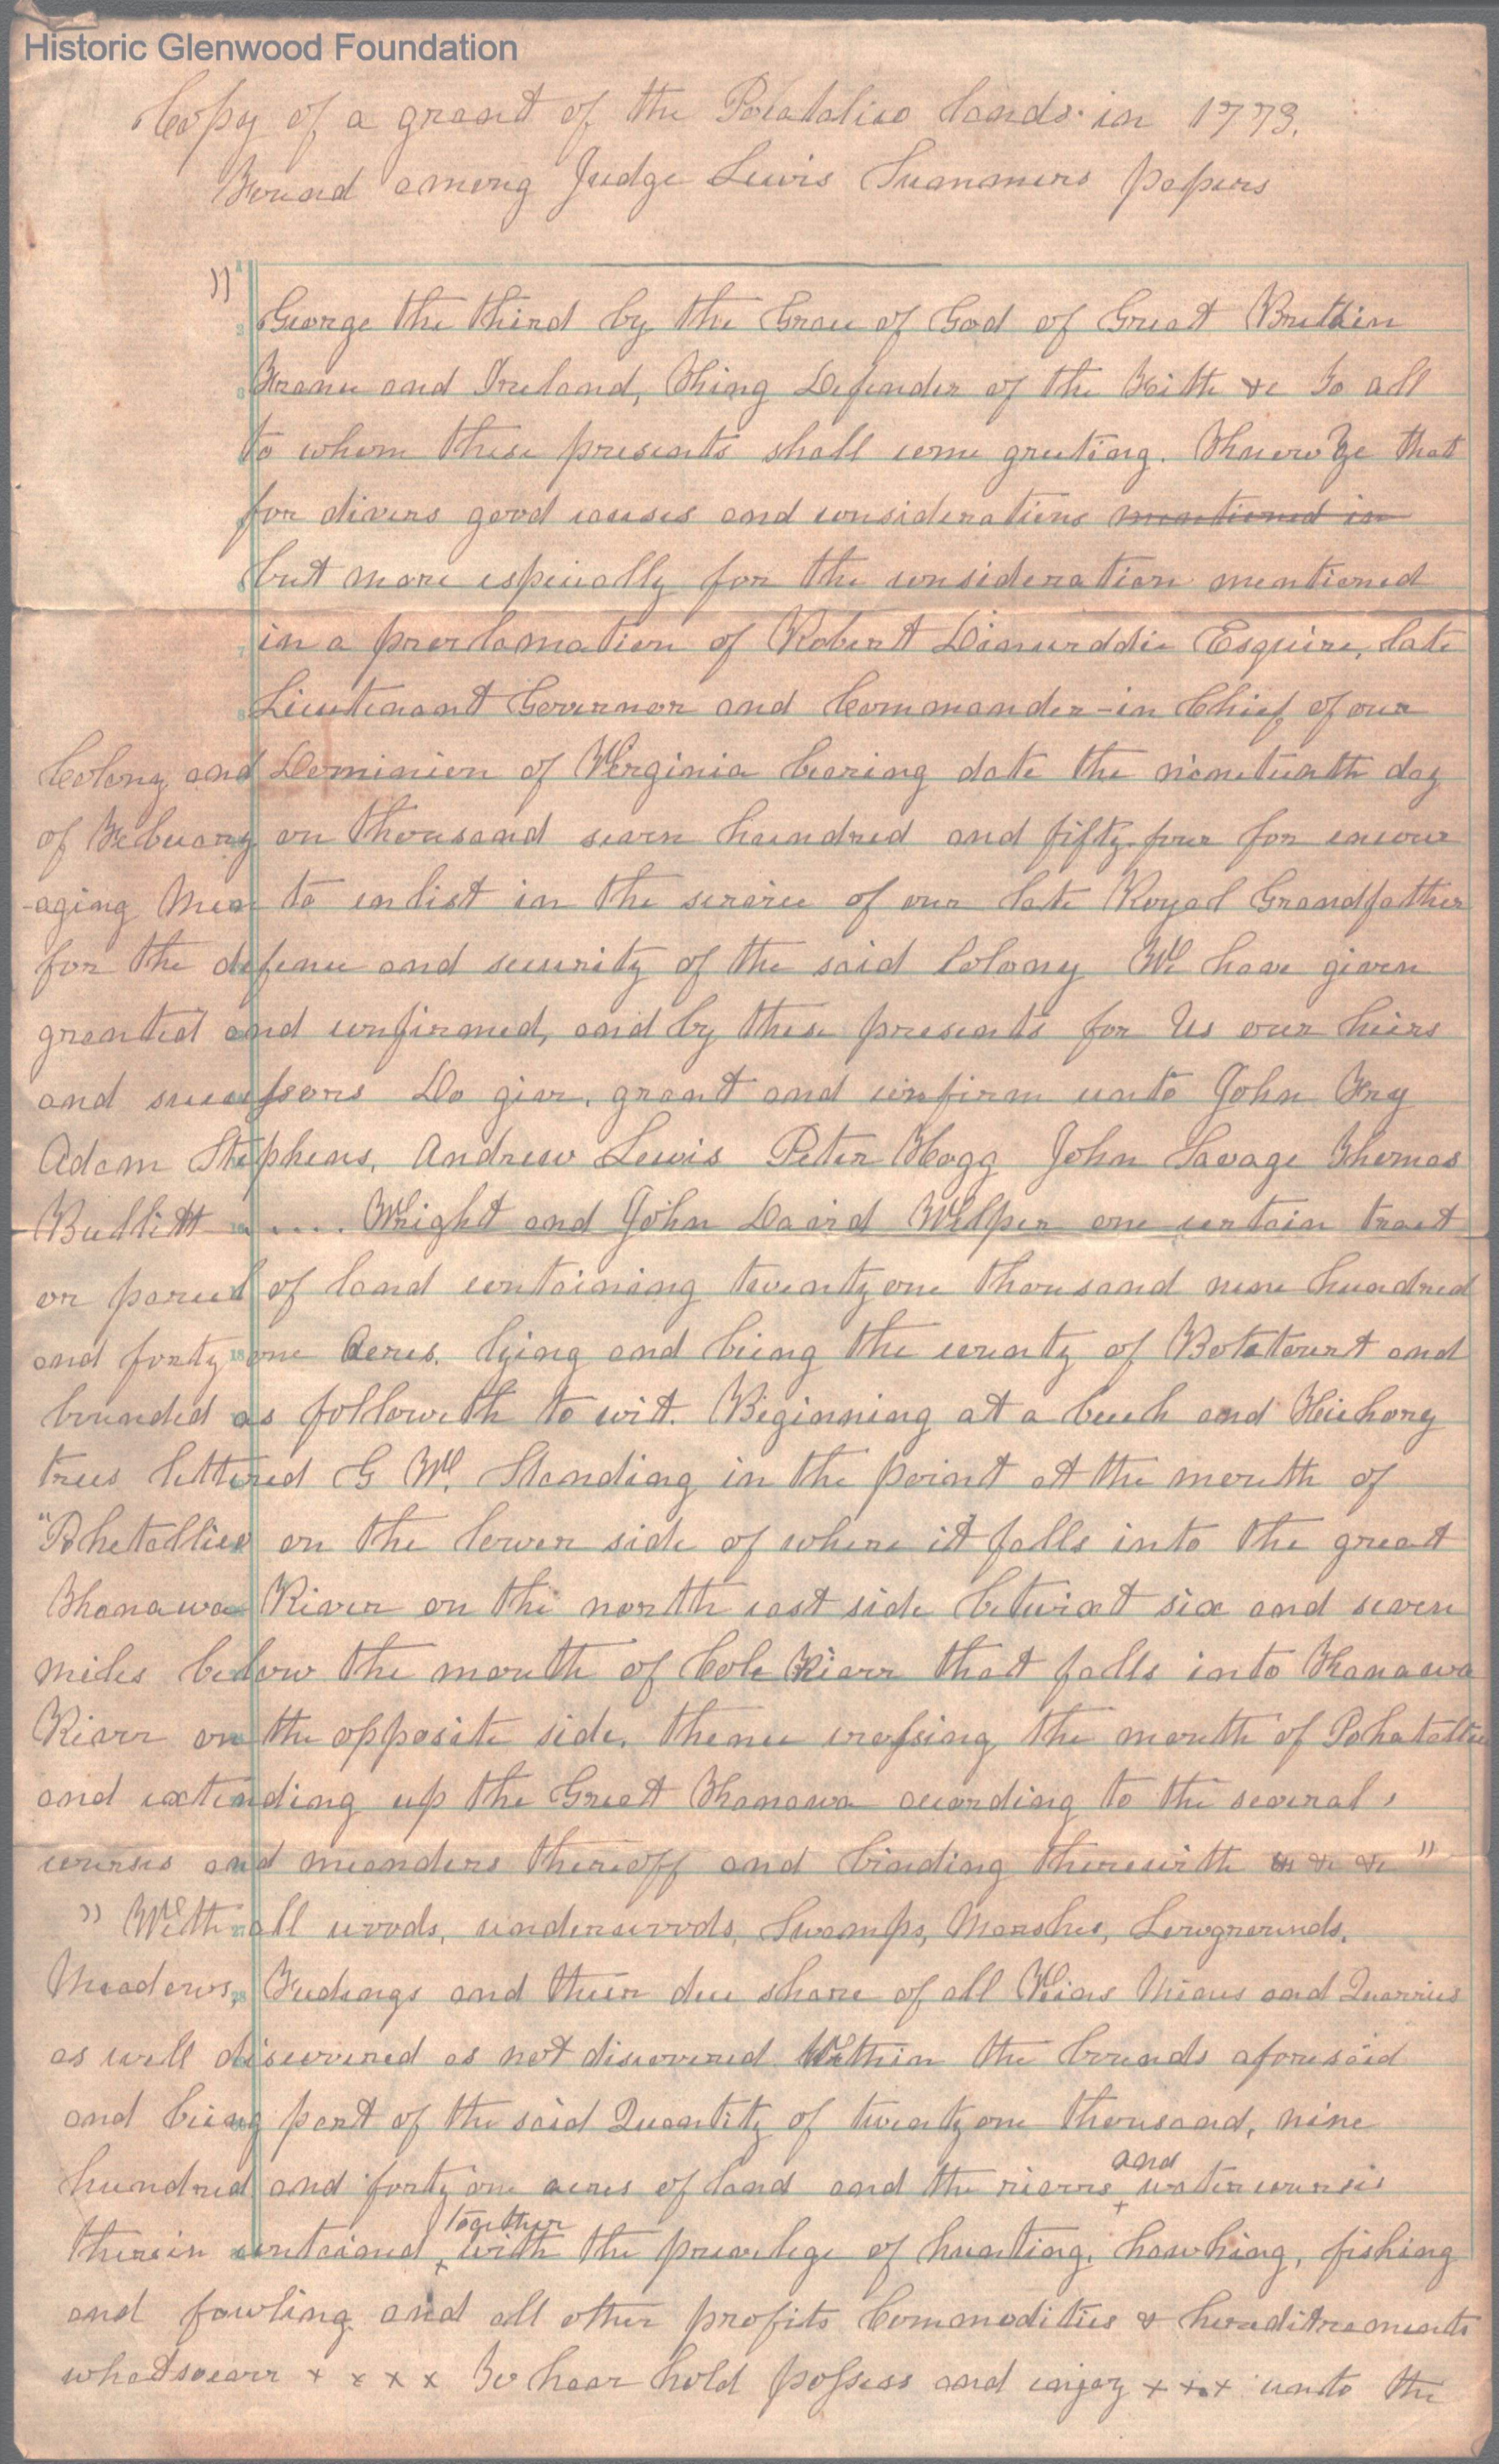 Historic Glenwood Foundation
Copy of a grant of the Pocatalico lands in 1773.
Found among Judge Lewis Summers papers
" George the third by the Grace of God of Great Brittain
France and Ireland, King Defender of the Feith &c To all
to whom these presents shall come greeting. Know Ye that
for divers good causes and considerations mentioned in
but more espicially for the consideration mentioned
in a proclamation of Robert Dinwiddie Esquire, late
Lieutenant Governor and Commander-in Chief of our
Colony and Dominion of Virginia bearing date the nineteenth day
of Febuary on thousand seven hundred and fifty four for encour
-aging Men to enlist in the service of our late Royal Grandfather
for the defence and security of the said Colony We have given
granted and confirmed, and by these presents for Us our heirs
and successors Do give, grant and confirm unto John Fry
Adam Stephens, Andrew Lewis Peter Hogg John Savage Thomas
Bullitt .... Wright and John David Wilper one certain tract
or parcel of land containing twenty one thousand nine hundred
and forty one Acres, lying and being the county of Botetourt and
bounded as followeth to wit. Beginning at a beech and Hickory
trees lettered G W. Standing in the point at the mouth of
"Pohetallico on the lower side of where it falls into the great
Kanawa River on the north east side betwixt six and seven
miles below the mouth of Cole River that falls into Kanawa
River on the opposite side, thence crossing the mouth of
and extending up the Great Kanawa according to the several
courses and meanders thereoff and binding therewith &c &c &c "
" With all woods, underwoods, Swamps, Marshes, Lowgrounds,
Meadows, Feedings and their due share of all Veins Mines and Quarries
as well discovered as not discovered Within the bounds aforesaid
and being part of the said Quantity of twenty one thousand, nine
hundred and forty one acres of land and the rivers and watercourses
therein contained together with the privelege of hunting, hawking, fishing
and fowling and all other profits Commodities & hereditrements
whatsoever x x x x To have hold possess and enjoy x x x unto the